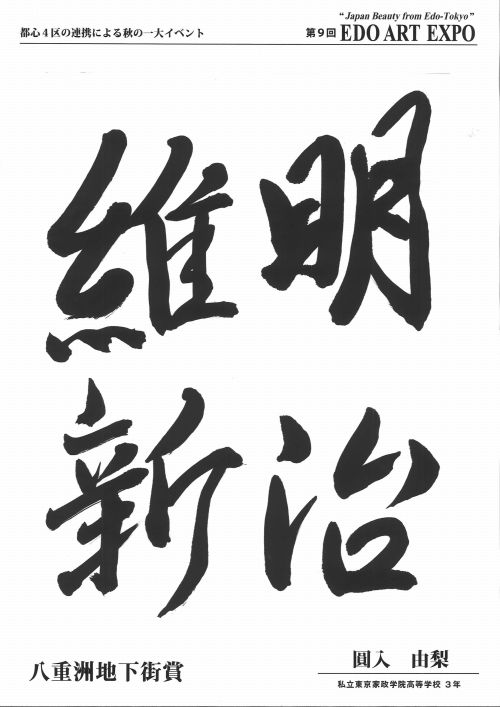 都心4区の連携による秋の一大イベント
“Japan Beauty from Edo-Tokyo”
第9回 EDO ART EXPO
明治
維新
八重洲地下街賞
圓入 由梨
私立東京家政学院高等学校 3年